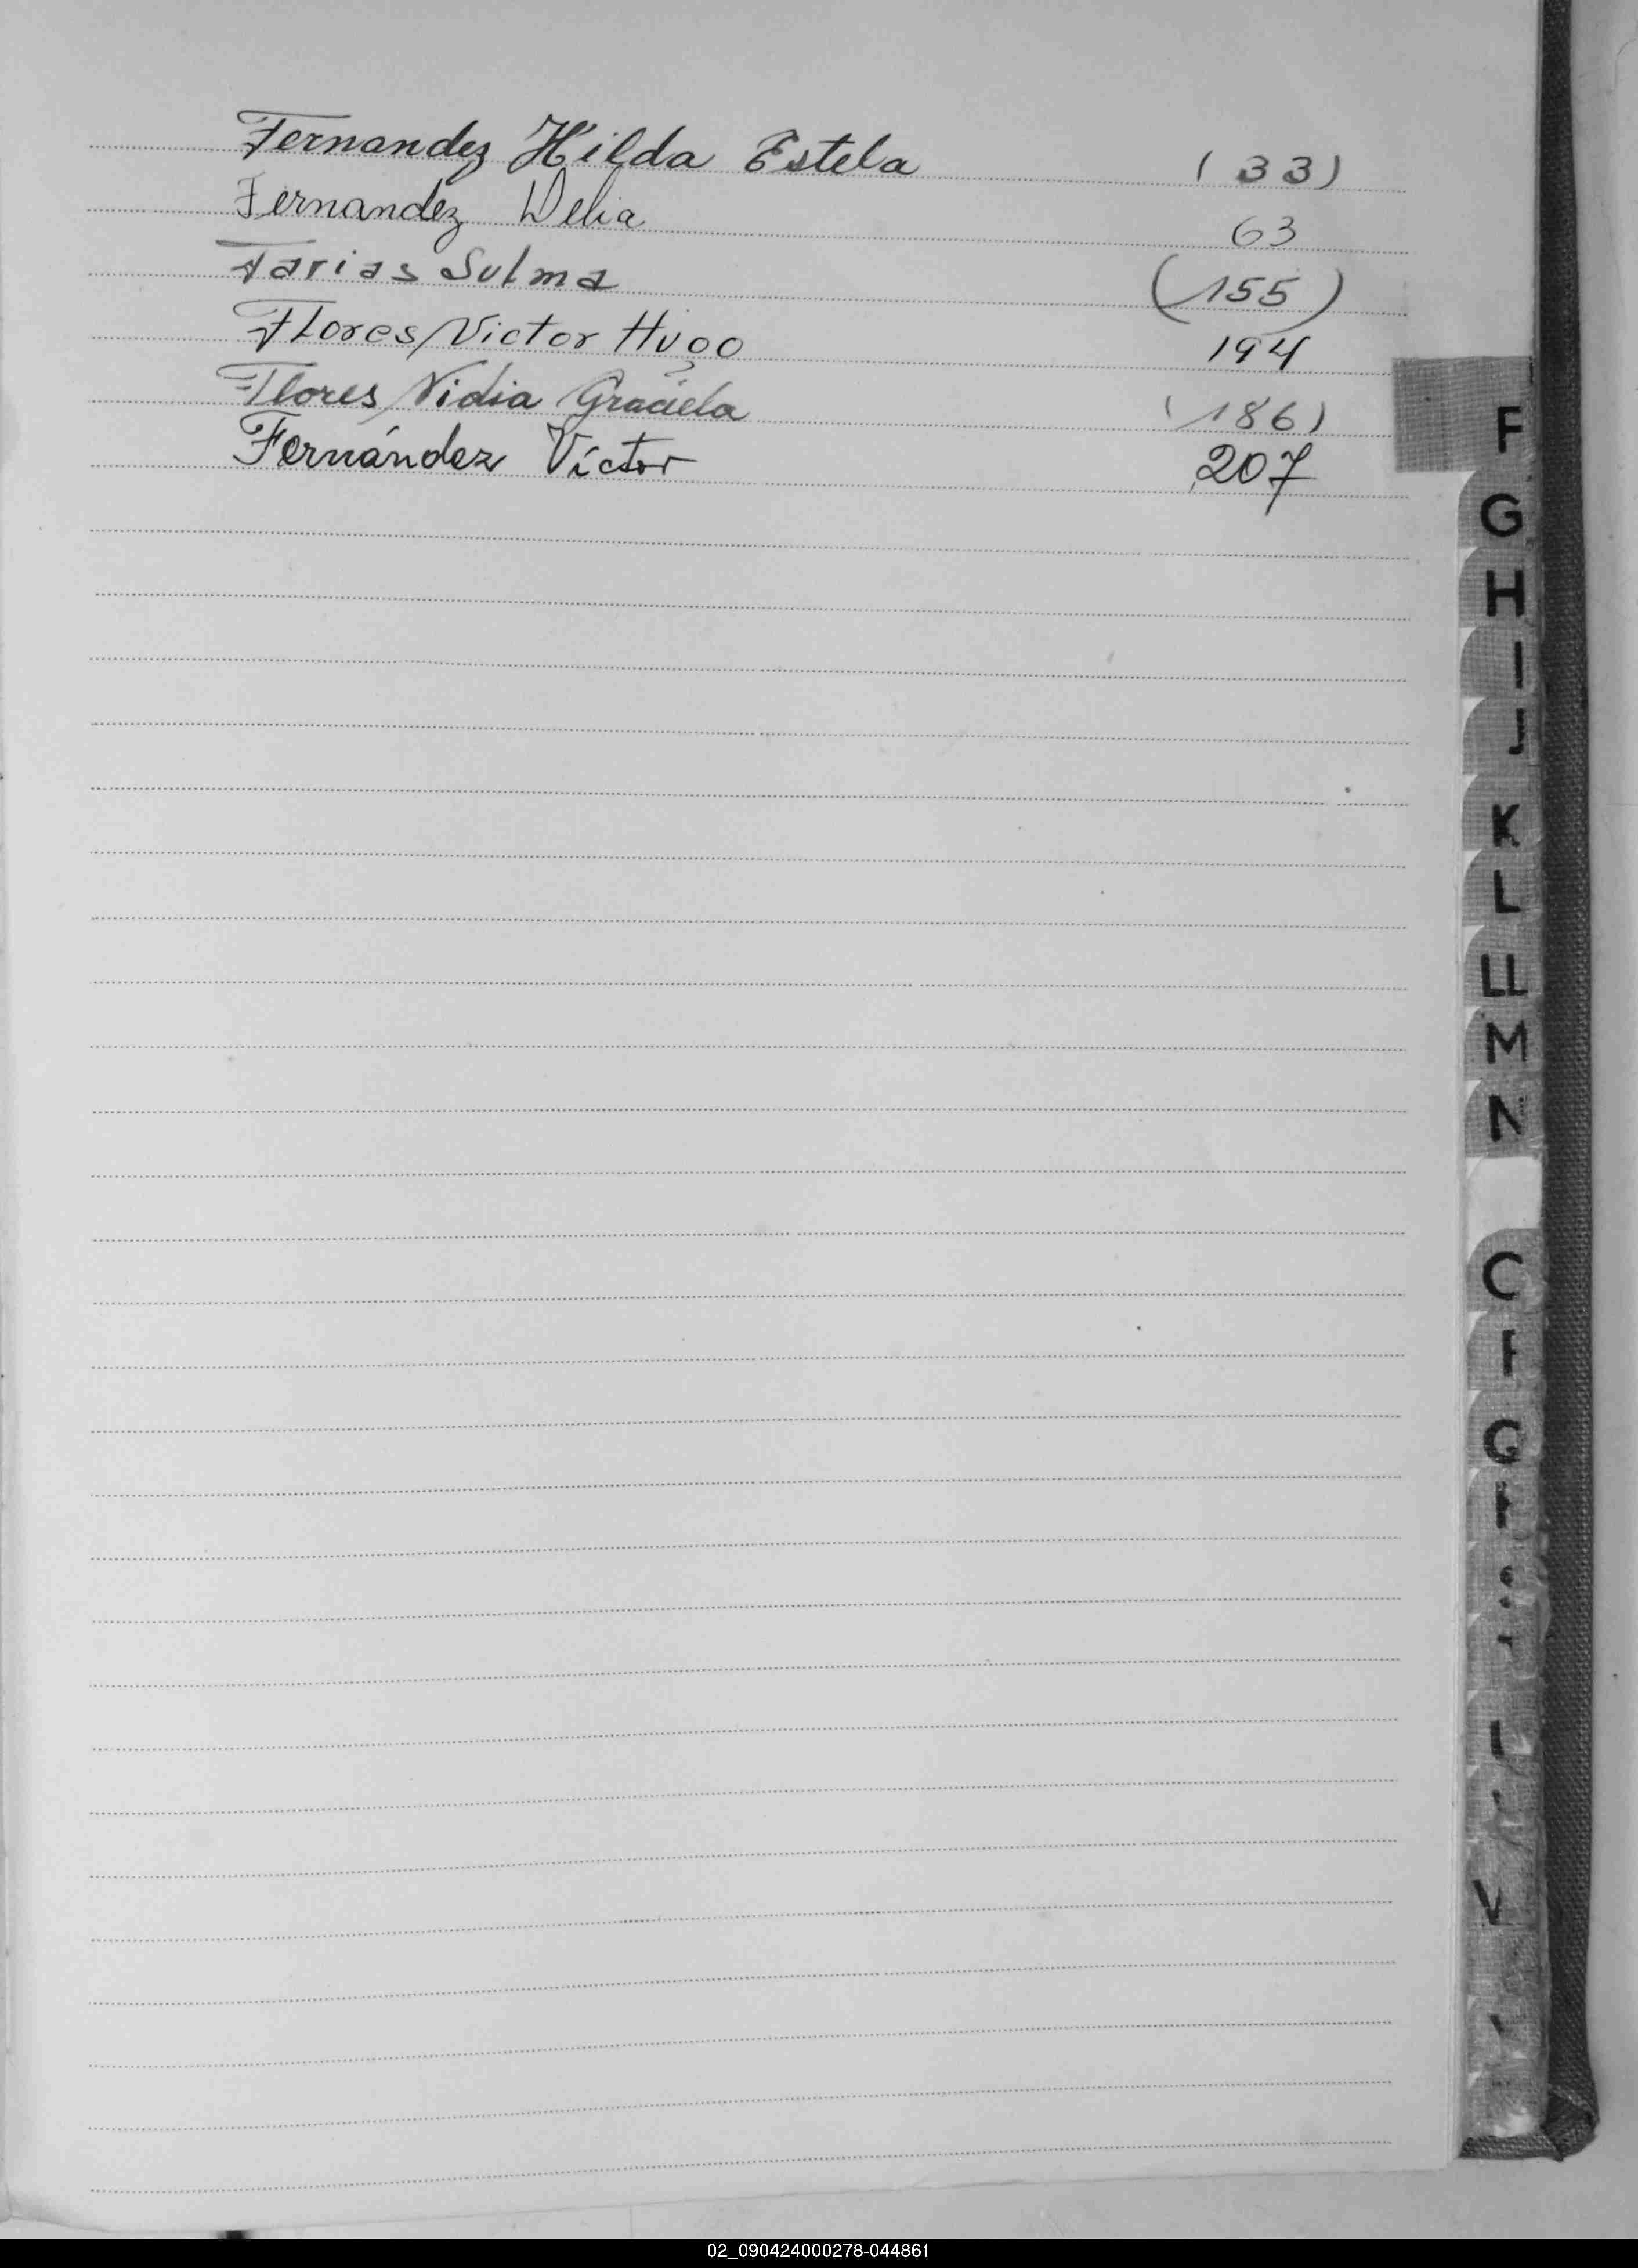 Fernandez Hilda Estela (33)
Fernandez Delia 63
Farias Sulma (155)
Flores, Victor Hugo 194
Flores, Nidia Graciela (186)
Fernández Víctor 207
F
G
H
I
J
K
L
LL
M
N
V
02_090424000278-044861